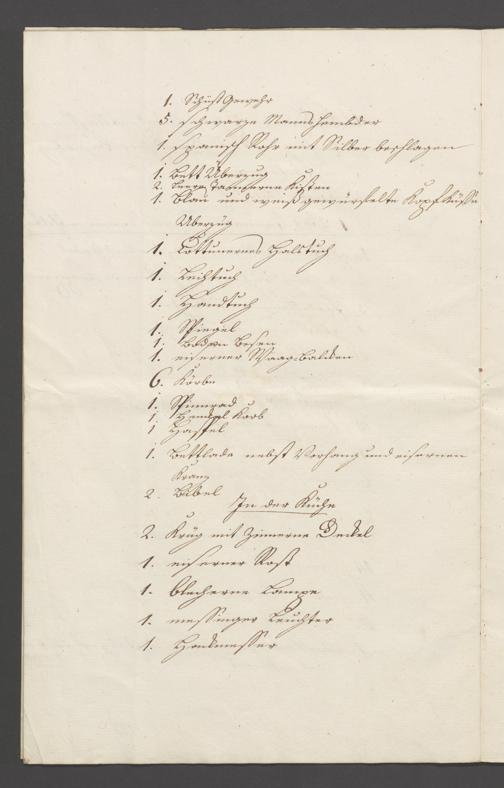 1. Schießgewehr
5. schwarze Mannshembder
1. spanisch Rohr mit Silber beschlagen
1. Bett Überzug
2. leere tannerne Kisten
1. Blau und weiß gewürfelte Kopfküße
Überzug
1. Cottunernes Halstuch
1. Leichtuch
1. Handtuch
1. Spiegel
1. Boden Besen
1. eiserner Waagbalcken
6. Körbe
1. Spinnrad
1. Henckel Korb
1 Haspel
1. Bettlade nebst Vorhang und eisernen
Kranz
2. Bibel
In der Küche
2. Krüg mit Zinnerne Deckel
1. eiserner Rost
1. blecherne Lampe
1. messinger Leuchter
1. Hackmesser